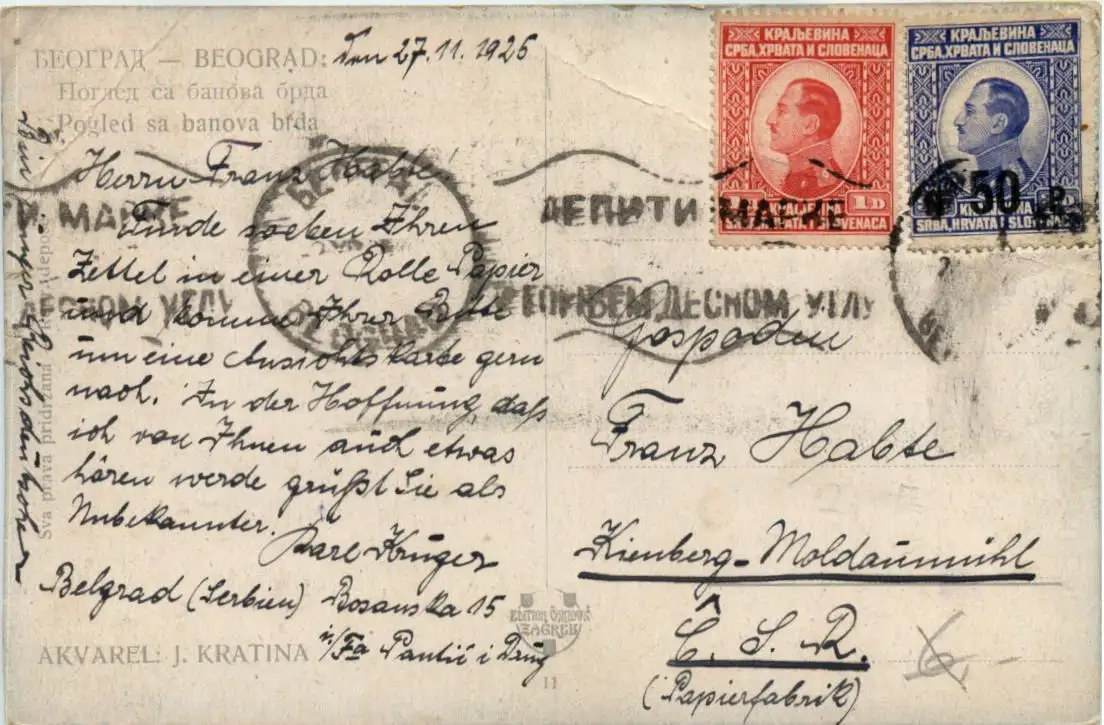 БЕОГРАД — BEOGRAD:
Den 27.11.1925
Поглед са банова брда
Pogled sa banova brda
Herrn Franz Habte
Finde soeben Ihren
Zettel in einer Rolle Papier
und komme Ihrer Bitte
um eine Ansichtskarte gern
nach. In der Hoffnung, daß
ich von Ihnen auch etwas
hören werde grüßt Sie als
Unbekannter.
Karl Krüger
Belgrad (Serbien) Bosanska 15
i/Fa Pantić i Drug
AKVAREL: J. KRATINA
Bin
Sva prava pridržana
КРАЉЕВИНА
СРБА, ХРВАТА И СЛОВЕНАЦА
1D
КРАЉЕВИНА
СРБА, ХРВАТА И СЛОВЕНАЦА
50 P
SRBA, HRVATA I
МАРКЕ
ЛЕПИТИ МАРКЕ
ДЕСНОМ УГЛУ
БЕОГРАД
Gospodin
Franz Habte
Kienberg-Moldaumühl
Č. S. R.
(Papierfabrik)
EDITION ČAKLOVIĆ
ZAGREB
11
6